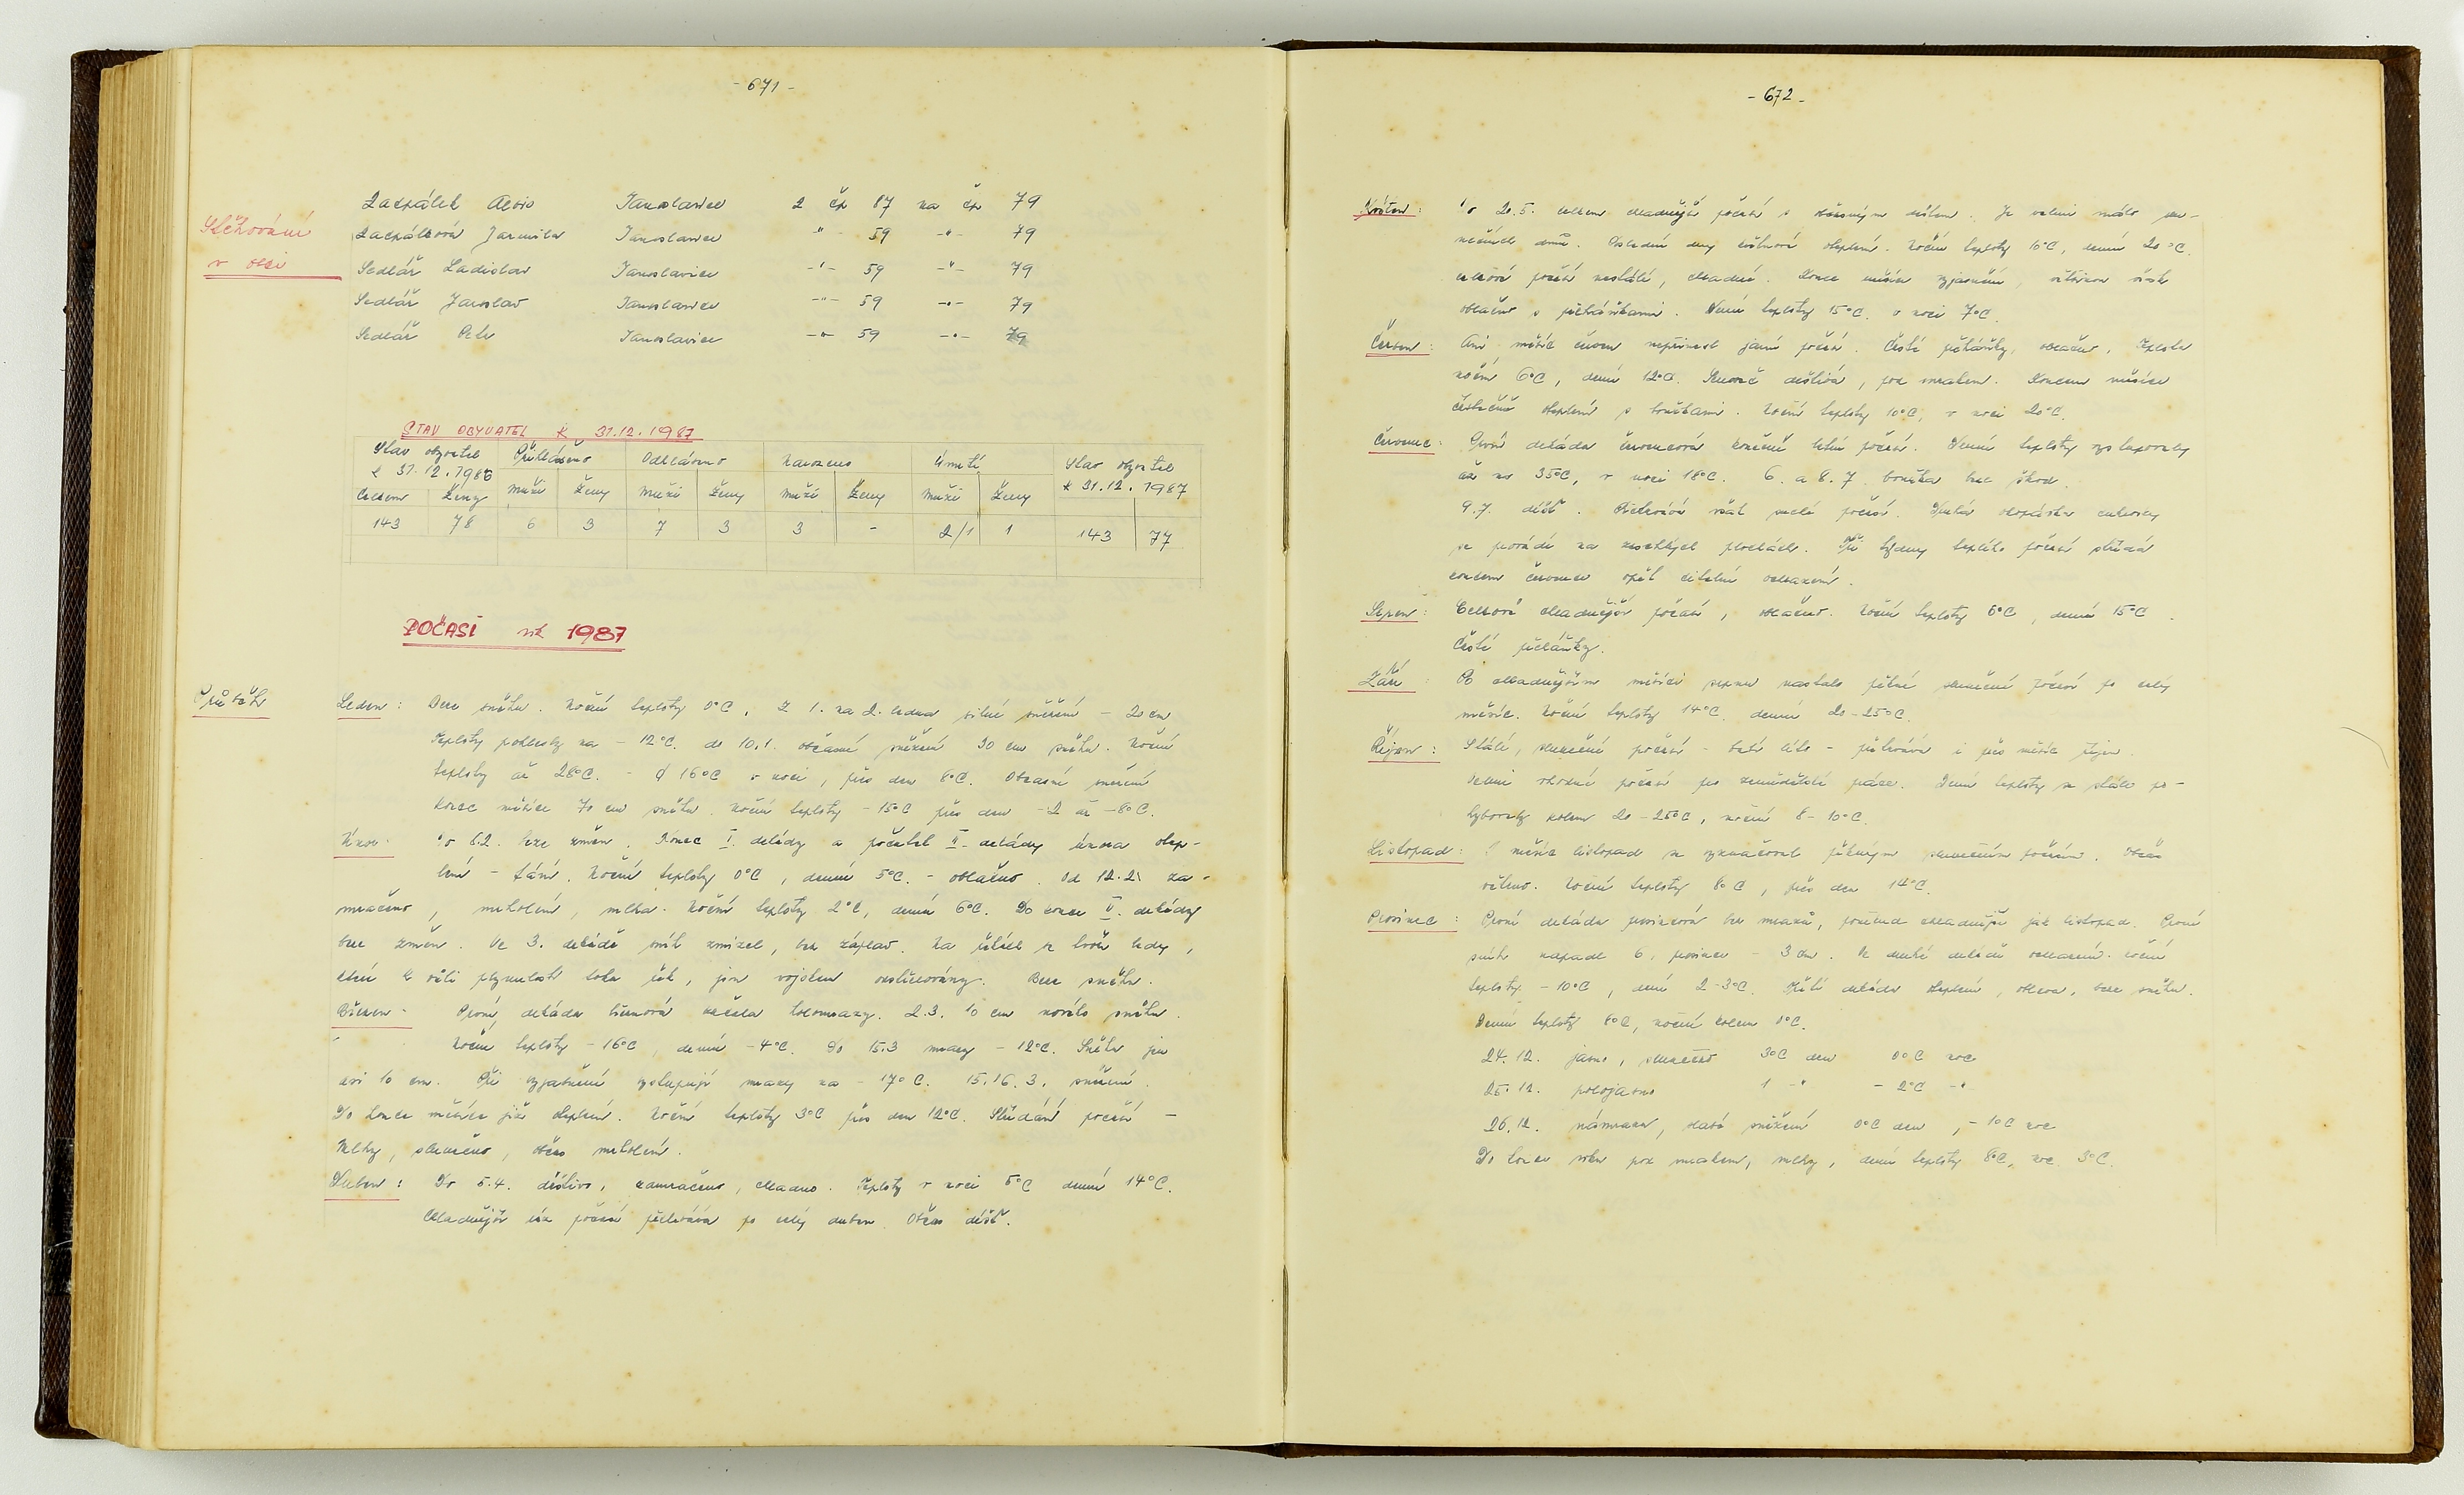 - 671 -
Stěhování
v obci
Zacpálek Alois Jaroslavice z čp 87 na čp 79
Zacpálková Jarmila Jaroslavice -"- 59 -"- 79
Sedlář Ladislav Jaroslavice -"- 59 -"- 79
Sedlář Jaroslav Jaroslavice -"- 59 -"- 79
Sedlář Petr Jaroslavice -"- 59 -"- 79
STAV OBYVATEL K 31.12.1987
Stav obyvatel Přihlášeno Odhlášeno Narozeno Úmrtí Stav obyvatel
k 31.12.1986 k 31.12.1987
Celkem Ženy Muži Ženy Muži Ženy Muži Ženy Muži Ženy
143 78 6 3 7 3 3 - 2/1 1 143 77
POČASÍ rok 1987
Průběh
Leden: Bez sněhu. Noční teploty 0°C. Z 1. na 2. ledna silné sněžení - 20 cm
Teploty poklesly na - 12°C. do 10.1. občasné sněžení 30 cm sněhu. Noční
teploty až 28°C. - ∅ 16°C v noci, přes den 8°C. Občasné sněžení
Konec měsíce 70 cm sněhu. Noční teploty - 15°C přes den -2 až -8°C.
Únor: Do 6.2. beze změn. Konec I. dekády a počátek II. dekády února otep-
lení - tání. Noční teploty 0°C, denní 5°C. - oblačno. Od 12.2. za-
mračeno, mrholení, mlha. Noční teploty 2°C, denní 6°C. Do konce II. dekády
beze změn. Ve 3. dekádě sníh zmizel, bez záplav. Na řekách se tvoří ledy,
které k vůli plynulosti toku řek, jsou vojskem odstřelovány. Bez sněhu.
Březen - První dekáda březnová začala holomrazy. 2.3. 10 cm nového sněhu.
Noční teploty - 16°C, denní -4°C. Do 15.3 mrazy - 12°C. Sněhu jen
asi 10 cm. Při vyjasnění vystupují mrazy na - 17°C. 15.16.3. sněžení.
Do konce měsíce již oteplení. Noční teploty 3°C přes den 12°C. Střídání počasí -
Mlhy, slunečno, občas mrholení.
Duben: Do 5.4. deštivo, zamračeno, chladno. Teploty v noci 5°C denní 14°C.
Chladnější ráz počasí přetrvává po celý duben. Občas déšť.
- 672 -
Květen: Do 20.5. celkem chladnější počasí s občasným deštěm. Je velmi málo slu-
nečních dnů. Poslední dny květnové oteplení. Noční teploty 10°C, denní 20°C.
celkově počasí nestálé, chladné. Konec měsíce vyjasnění, většinou však
oblačno s přeháňkami. Denní teploty 15°C. v noci 7°C.
Červen: Ani měsíc červen nepřinesl jarní počasí. Časté přeháňky, oblačno. Teplota
noční 6°C, denní 12°C. Medard deštivý, pod mrakem. Koncem měsíce
částečné oteplení s bouřkami. Noční teploty 10°C, v noci 20°C.
Červenec: První dekáda červencová konečně letní počasí. Denní teploty vystupovaly
až na 35°C, v noci 18°C. 6. a 8.7. bouřka bez škod.
9.7. déšť. Přetrvává však suché počasí. Druhá okopávka cukrovky
se provádí na zaschlých plochách. Tři týdny teplého počasí střídá
koncem července opět citelné ochlazení.
Srpen: Celkově chladnější počasí, oblačno. Noční teploty 6°C, denní 15°C.
Časté přeháňky.
Září: Po chladnějším měsíci srpnu nastalo pěkné slunečné počasí po celý
měsíc. Noční teploty 14°C. denní 20-25°C.
Říjen: Stálé, slunečné počasí - babí léto - přetrvává i přes měsíc říjen.
Velmi vhodné počasí pro zemědělské práce. Denní teploty se stále po-
hybovaly kolem 20-25°C, noční 8-10°C.
Listopad: I měsíc listopad se vyznačoval pěkným slunečním počasím. Občas
větrno. Noční teploty 8°C, přes den 14°C.
Prosinec: První dekáda prosincová bez mrazů, poněkud chladnější jak listopad. První
sníh napadl 6. prosince - 3 cm. Ve druhé dekádě ochlazení. noční
teploty - 10°C, denní 2-3°C. Třetí dekáda oteplení, obleva, beze sněhu.
Denní teploty 8°C, noční kolem 0°C.
24.12. jasno, slunečno 3°C den 0°C noc
25.12. polojasno 1 -"- - 2°C -"-
26.12. námraza, slabé sněžení 0°C den, - 1°C noc
Do konce roku pod mrakem, mlhy, denní teploty 8°C, noc 3°C.